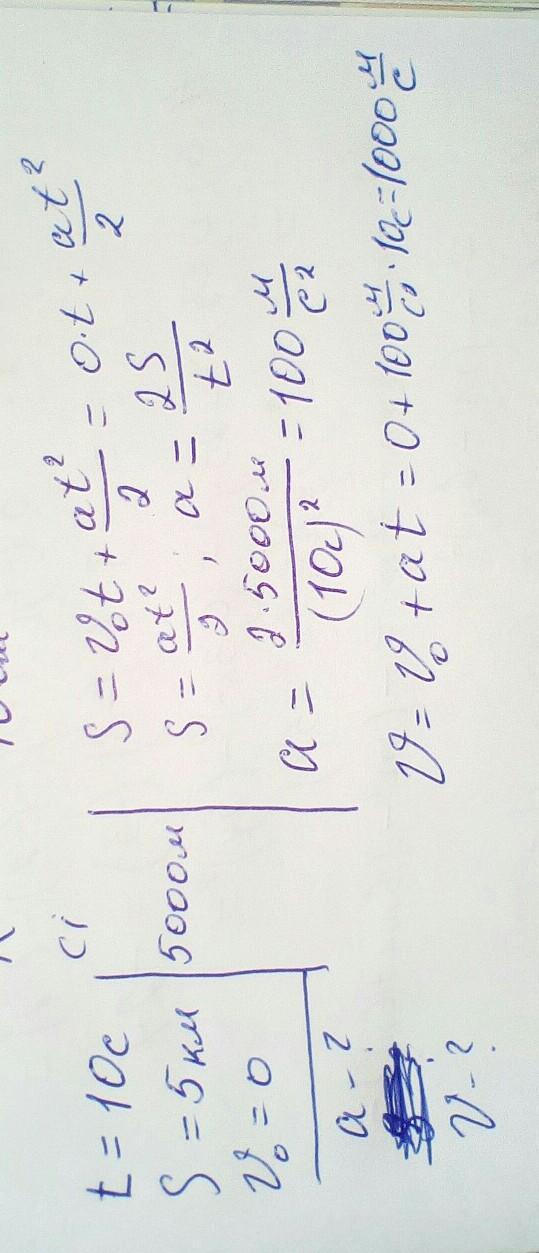 t = 10с
S = 5 км
v₀ = 0
a - ?
v - ?
Сі
5000м
S = v₀t + at²/2 = 0·t + at²/2
S = at²/2 ; a = 2S/t²
a = 2·5000м/(10с)² = 100 м/с²
v = v₀ + at = 0 + 100 м/с² · 10с = 1000 м/с